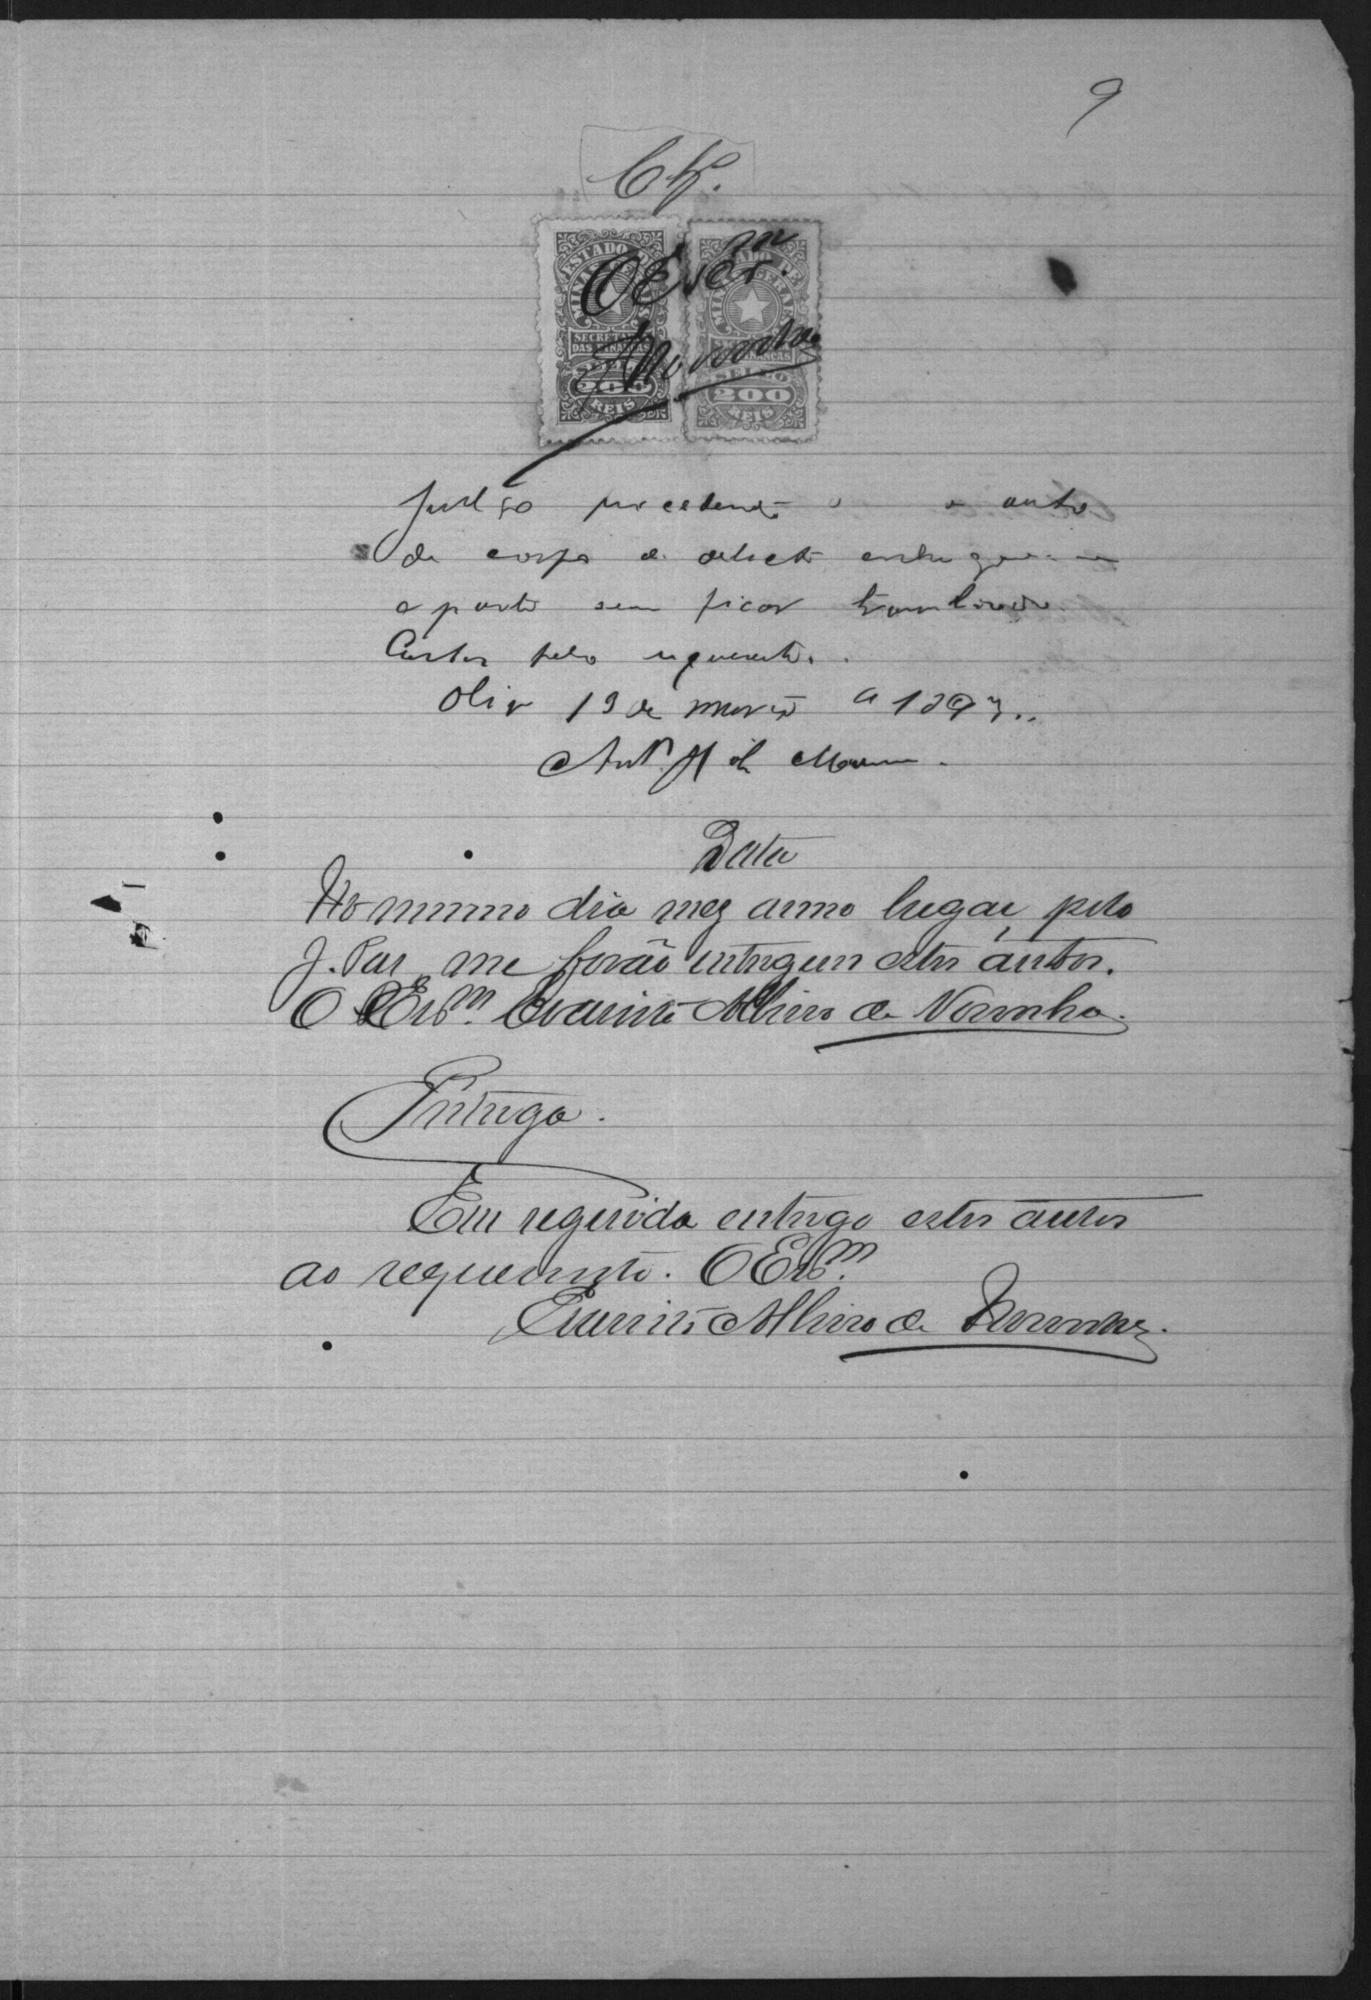 9
Cls.
ESTADO DE MINAS GERAES
SECRETARIA DAS FINANÇAS
SELLO
200
REIS
ESTADO DE MINAS GERAES
FINANÇAS
SELLO
200
REIS
O Escr.m
Noronha
Julgo procedente o auto
de corpo de delicto entregue-se
a parte sem ficar traslado
Custas pelo requerente.
Oliv 19 de março de 1897..
Ant.º
Data
No mesmo dia mez anno lugar, pelo
J. Paz me forão entregues estes autos.
O Escr.m Evaristo Alvino de Noronha.
Entrega.
Em seguida entrego estes autos
ao requerente. O Escr.m
Evaristo Alvino de Noronha.